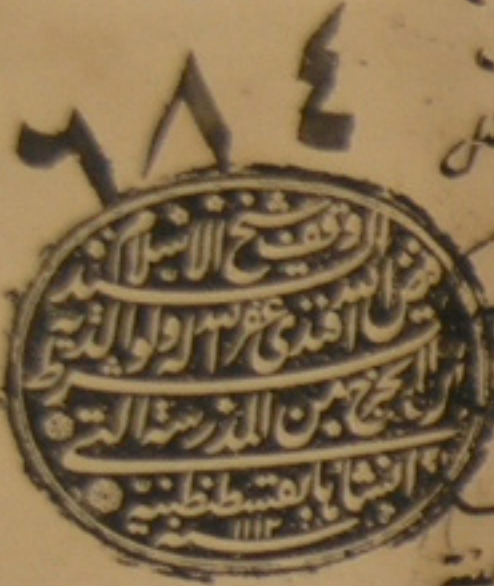 ٦٨٤
وقف شيخ الاسلام السيد
فيض الله افندى غفر الله له ولوالديه
بشرط ان لا يخرج من المدرسة التى
انشأها بقسطنطنية
سنة ١١١٢